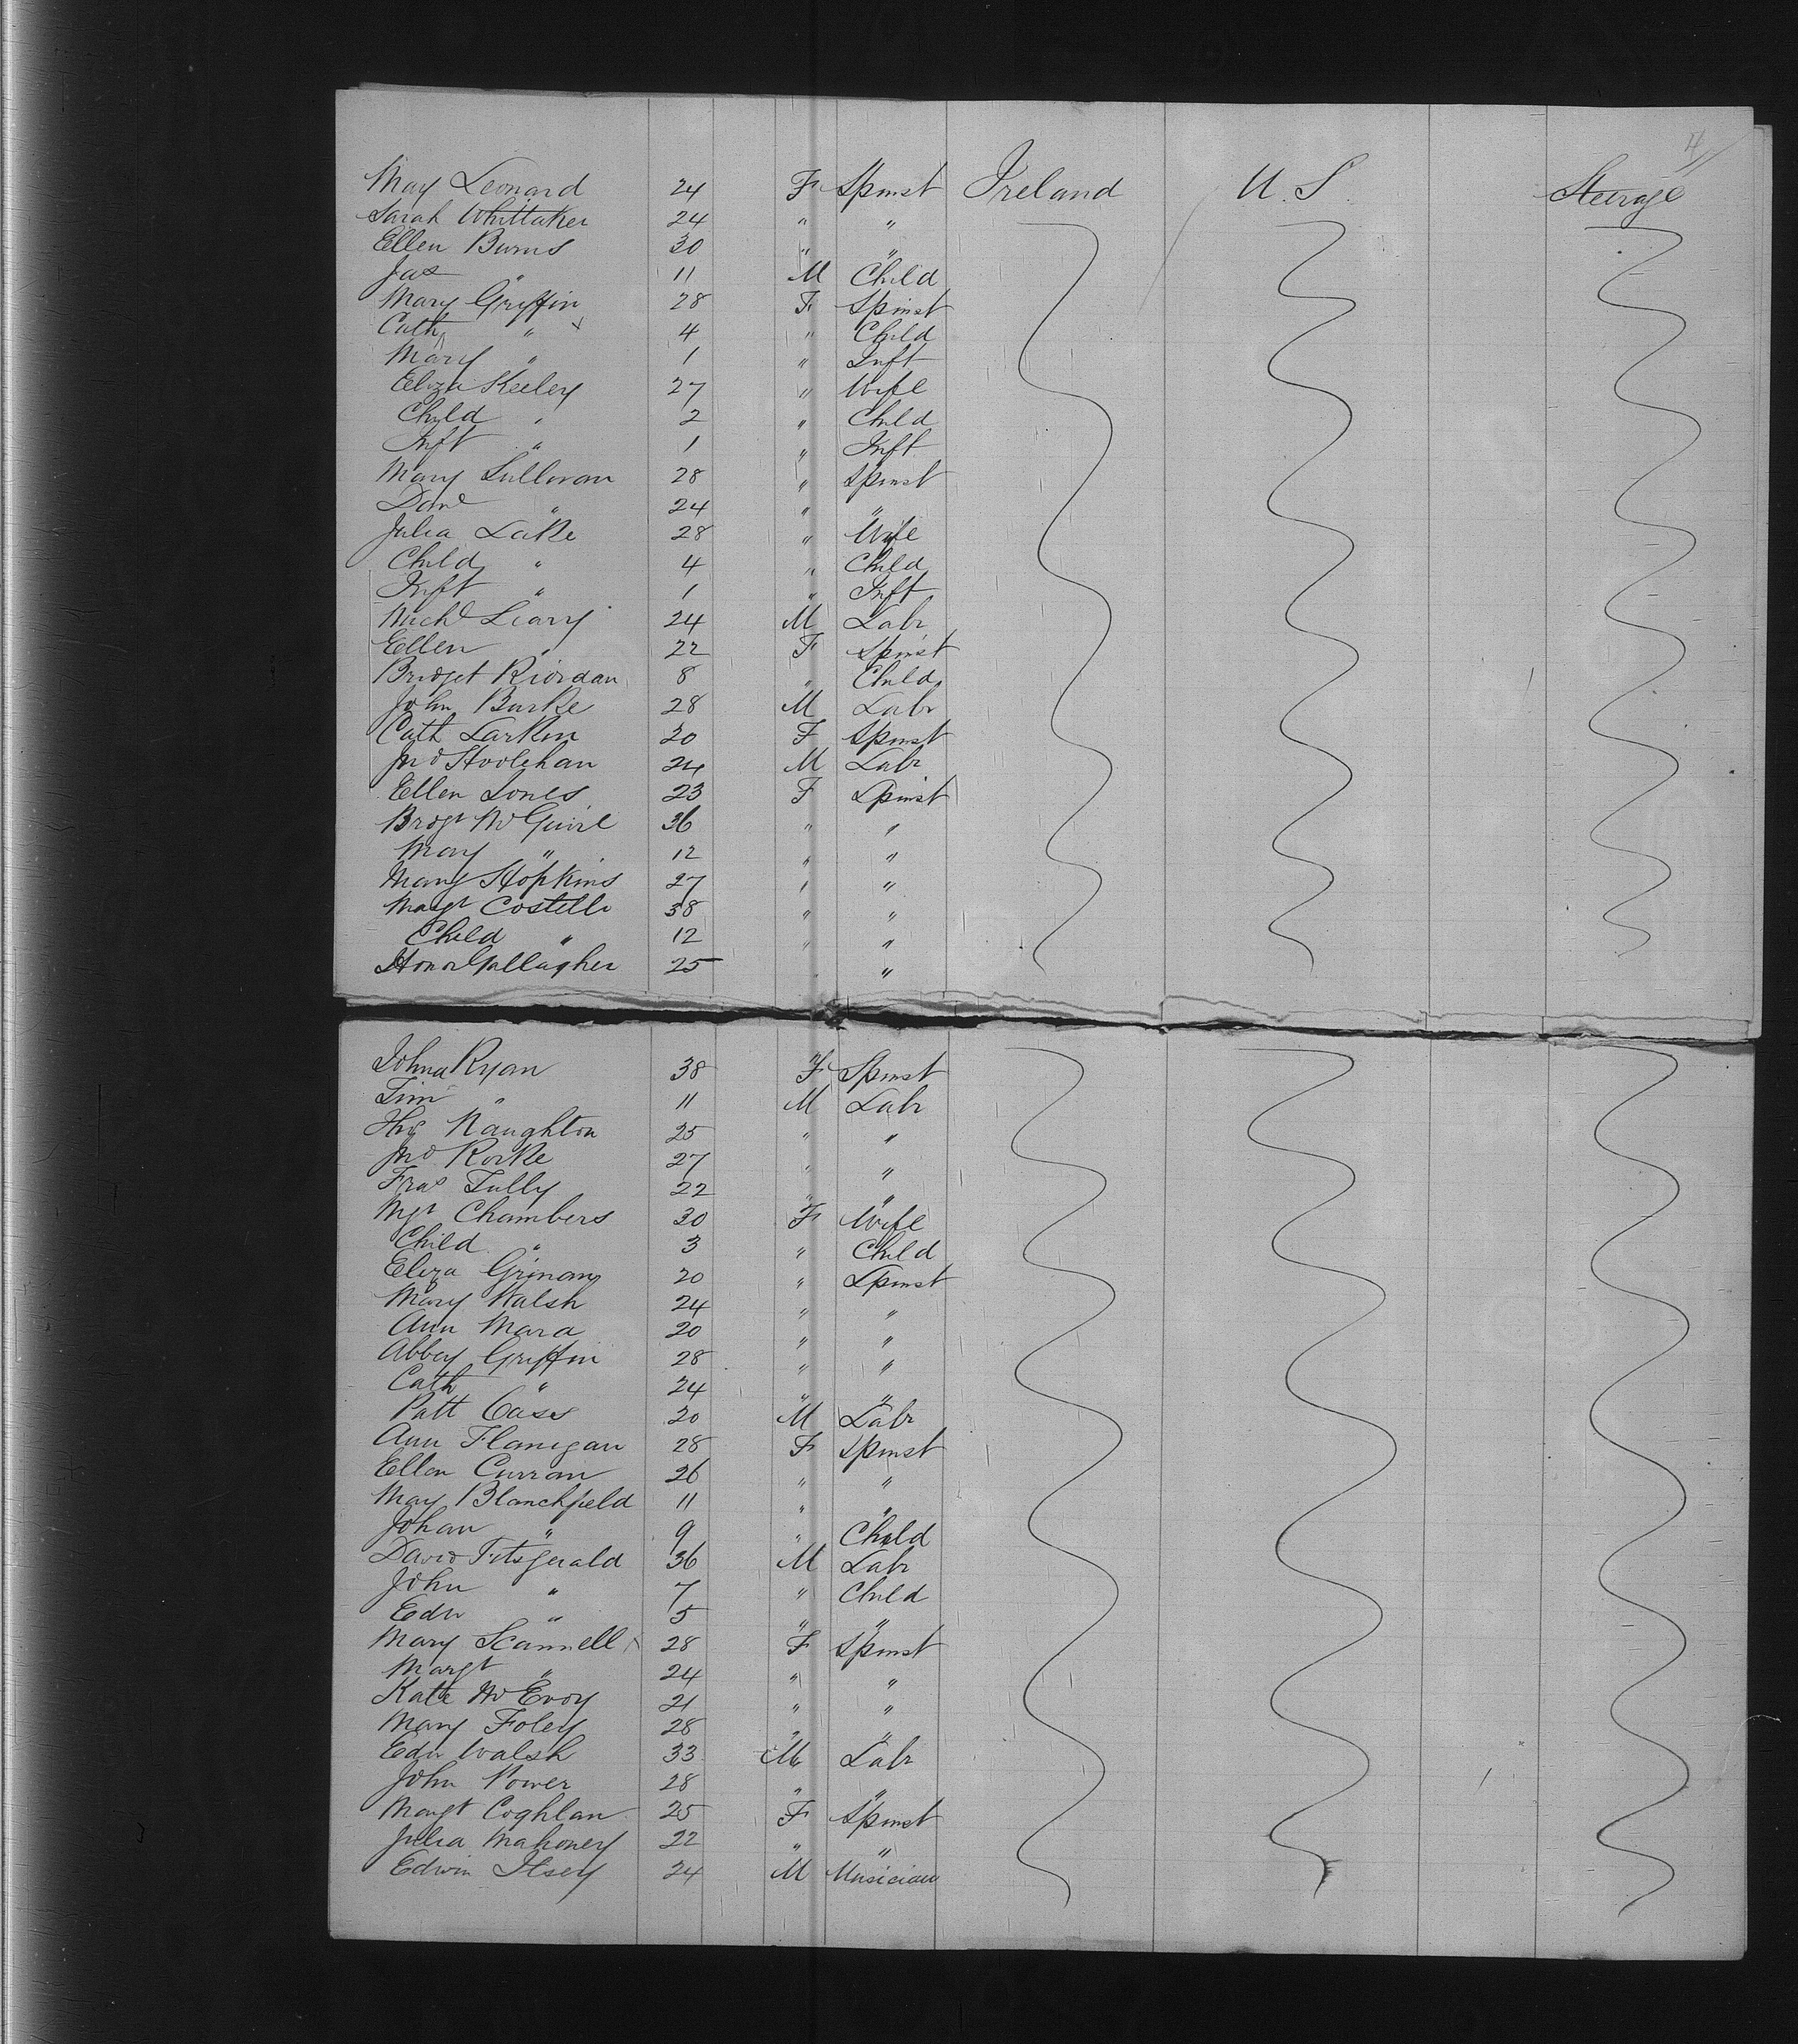 4
May Leonard 24 F Spinst Ireland U.S. Steerage
Sarah Whittaker 24 " "
Ellen Burns 30 " "
Jas " 11 M Child
Mary Griffin 28 F Spinst
Cath " 4 " Child
Mary " 1 " Inft
Eliza Keeley 27 " Wife
Child " 2 " Child
Inft " 1 " Inft
Mary Sullivan 28 " Spinst
Danl " 24 " "
Julia Lake 28 " Wife
Child " 4 " Child
Inft " 1 " Inft
Michl Leary 24 M Labr
Ellen " 22 F Spinst
Bridget Riordan 8 " Child
John Burke 28 M Labr
Cath Larkin 20 F Spinst
Jno Hoolehan 24 M Labr
Ellen Jones 23 F Spinst
Bridgt McGuire 36 " "
Mary " 12 " "
Mary Hopkins 27 " "
Margt Costello 38 " "
Child " 12 " "
Honor Gallagher 25 "
Johna Ryan 38 F Spinst
Tim " 11 M Labr
Thos Naughton 25 " "
Jno Rorke 27 " "
Fras Tully 22 " "
Mgt Chambers 30 F Wife
Child " 3 " Child
Eliza 20 " Spinst
Mary Walsh 24 " "
Ann Mara 20 " "
Abbey Griffin 28 " "
Cath " 24 " "
Patt Cass 20 M Labr
Ann Flanigan 28 F Spinst
Ellen Curran 26 " "
May Blanchfield 11 " "
Johan " 9 " Child
David Fitzgerald 36 M Labr
John " 7 " Child
Edw " 5 " "
Mary Scannell 28 F Spinst
Margt " 24 " "
Kate McEvoy 21 " "
Mary Foley 28 " "
Edw Walsh 33 M Labr
John Power 28 " "
Margt Coghlan 25 F Spinst
Julia Mahoney 22 " "
Edwin 24 M Musician